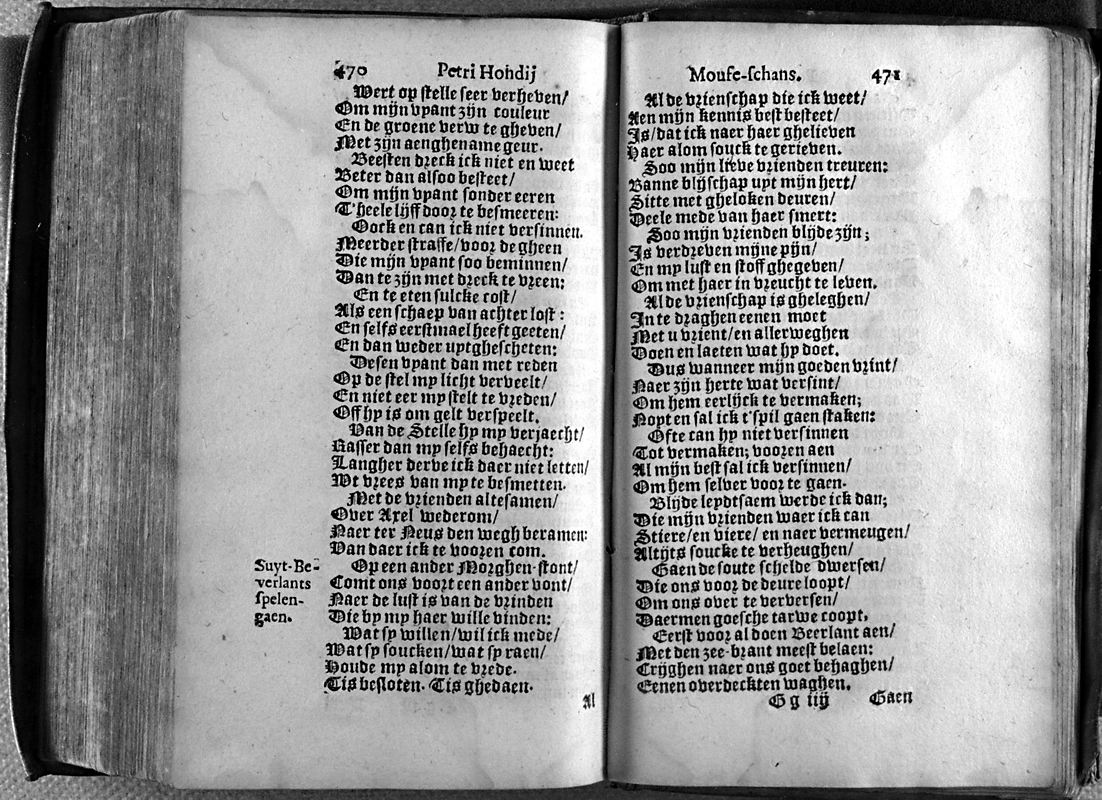 470 Petri Hondij
Wert op stelle seer verheven/
Om mijn vyant zijn couleur
En de groene verw te gheven/
Met zijn aenghename geur.
Beesten dreck ick niet en weet
Beter dan alsoo besteet/
Om mijn vyant sonder eeren
T'heele lijff door te besmeeren:
Oock en can ick niet versinnen.
Meerder straffe/voor de gheen
Die mijn vyant soo beminnen/
Dan te zijn met dreck te vreen:
En te eten sulcke cost/
Als een schaep van achter lost:
En selfs eerstmael heeft geeten/
En dan weder uytghescheten:
Desen vyant dan met reden
Op de stel my licht verveelt/
En niet eer my stelt te vreden/
Off hy is om gelt verspeelt.
Van de Stelle hy my verjaecht/
Rasser dan my selfs behaecht:
Langher derve ick daer niet letten/
Wt vrees van my te besmetten.
Met de vrienden altesamen/
Over Axel wederom/
Naer ter Neus den wegh beramen:
Van daer ick te vooren com.
Suyt-Be-
verlants
spelen-
gaen.
Op een ander Morghen-stont/
Comt ons voort een ander vont/
Naer de lust is van de vrinden
Die by my haer wille vinden:
Wat sy willen/wil ick mede/
Wat sy soucken/wat sy raen/
Houde my alom te vrede.
Tis besloten. Tis ghedaen.
Al
Moufe-schans. 471
Al de vrienschap die ick weet/
Aen mijn kennis best besteet/
Is/dat ick naer haer ghelieven
Haer alom souck te gerieven.
Soo mijn lieve vrienden treuren:
Banne blijschap uyt mijn hert/
Sitte met gheloken deuren/
Deele mede van haer smert:
Soo mijn vrienden blijde zijn;
Is verdreven mijne pijn/
En my lust en stoff ghegeven/
Om met haer in vreucht te leven.
Al de vrienschap is gheleghen/
In te draghen eenen moet
Met u vrient/en allerweghen
Doen en laeten wat hy doet.
Dus wanneer mijn goeden vrint/
Naer zijn herte wat versint/
Om hem eerlijck te vermaken;
Noyt en sal ick t'spil gaen staken:
Ofte can hy niet versinnen
Tot vermaken; vooren aen
Al mijn best sal ick versinnen/
Om hem selver voor te gaen.
Blijde leydtsaem werde ick dan;
Die mijn vrienden waer ick can
Stiere/en viere/ en naer vermeugen/
Altijts soucke te verheughen/
Gaen de soute schelde dwersen/
Die ons voor de deure loopt/
Om ons over te ververssen/
Daermen goesche tarwe coopt.
Eerst voor al doen Beerlant aen/
Met den zee-brant meest belaen:
Crijghen naer ons goet behaghen/
Eenen overdeckten waghen.
G g iij Gaen